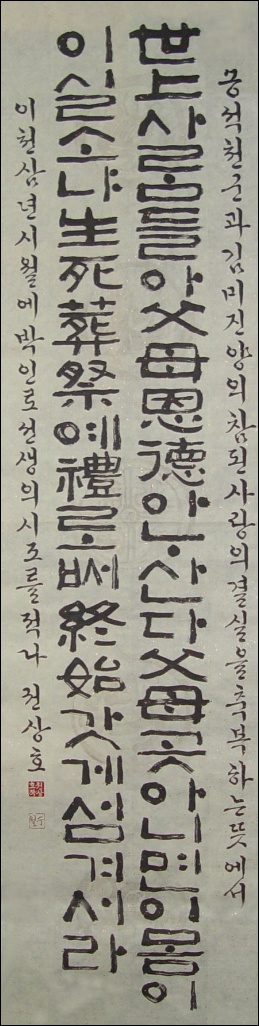 석천군과김미진양의참된사랑의결실을축복하는뜻에서
世上사ᄅᆞᆷ들아父母恩德아ᄂᆞ산다父母곳아니면이몸이
이실소냐生死葬祭예禮로ᄡᅥ終始갓게섬겨서라
이천삼년시월에박인로선생의시조를적다 전상호